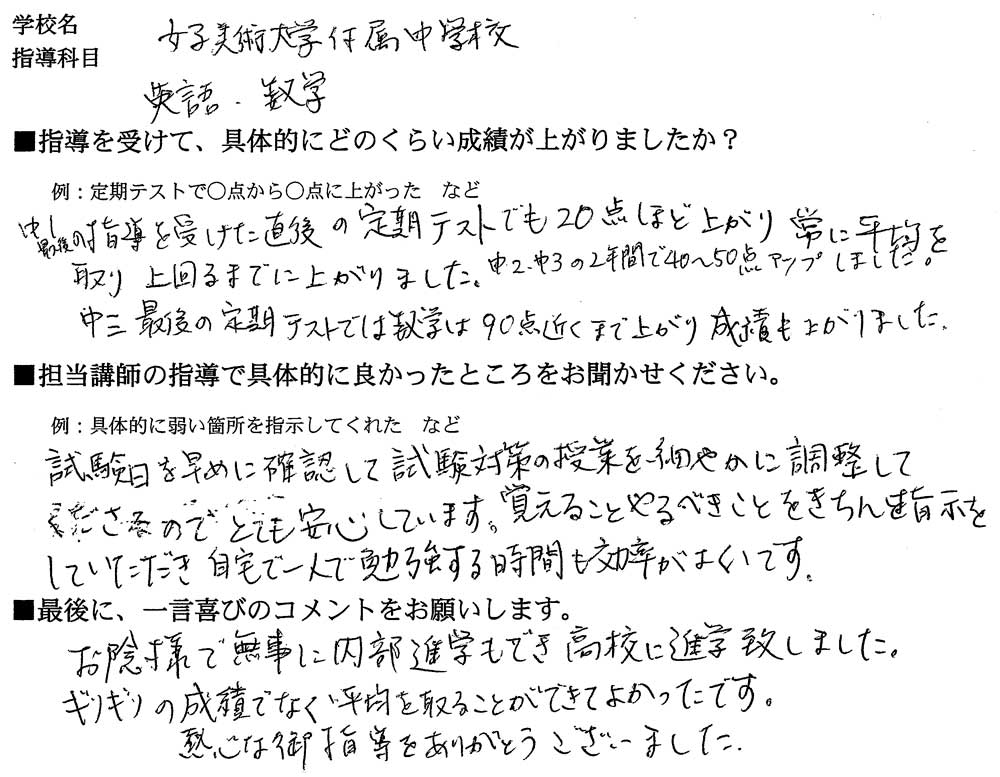 学校名
女子美術大学付属中学校
指導科目
英語・数学
■指導を受けて、具体的にどのくらい成績が上がりましたか？
例：定期テストで○点から○点に上がった など
中1最後の指導を受けた直後の定期テストでも20点ほど上がり常に平均を
取り上回るまでに上がりました。中2、中3の2年間で40～50点アップしました。
中三最後の定期テストでは数学は90点近くまで上がり成績も上がりました。
■担当講師の指導で具体的に良かったところをお聞かせください。
例：具体的に弱い箇所を指示してくれた など
試験日を早めに確認して試験対策の授業を細やかに調整して
くださるのでとても安心しています。覚えることややるべきことをきちんと指示を
していただき自宅で一人で勉強する時間も効率がよいです。
■最後に、一言喜びのコメントをお願いします。
お陰様で無事に内部進学もでき高校に進学致しました。
ギリギリの成績でなく平均を取ることができてよかったです。
熱心な御指導をありがとうございました。